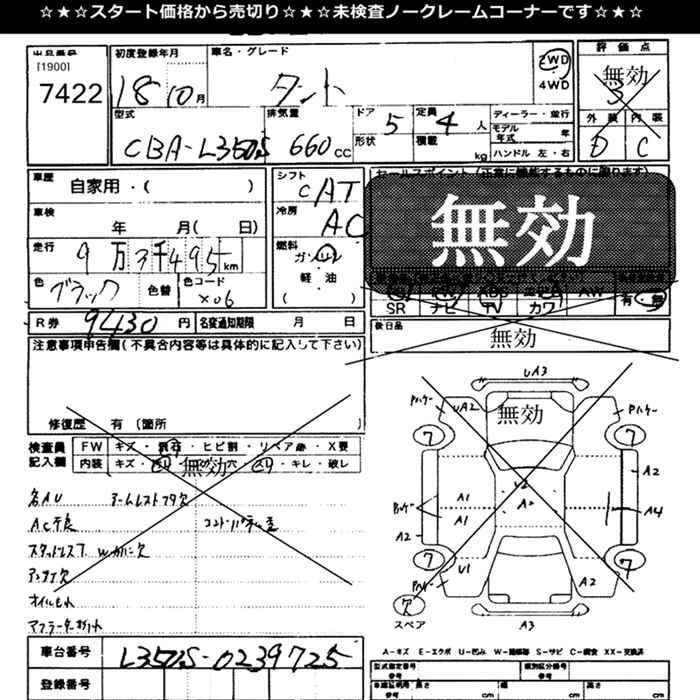 ☆★☆★スタート価格から売切り☆★☆★未検査ノークレームコーナーです☆★☆
出品番号 初度登録年月 車名・グレード 評価点
[1900]
7422 18 10月 タント 2WD 4WD 無効 3
型式 排気量 ドア 5 定員 4人 ディーラー・並行 外装 内装
CBA-L350S 660cc 形状 積載 kg モデル年式 年 D C
ハンドル 左・右
車歴 自家用・( ) シフト CAT セールスポイント(正常に機能するものに限ります)
車検 年 月( 日) 冷房 AC 無効
走行 9万3千495km 燃料 ガソリン
色 ブラック 色替 色コード X06 軽油 ( )
SR ナビ TV カワ AW 有・無
R券 9430円 名変通知期限 月 日 後日品 無効
注意事項申告欄(不具合内容等は具体的に記入して下さい)
修復歴 有 (箇所
UA3
UA2 無効
検査員記入欄 FW キズ・飛石・ヒビ割・リペア跡・X要
内装 キズ・ 無効 穴・ ・キレ・破レ
7 7
A2
A1 A2 A4
A1
A2
7 7
U1 A2
A3
欠 スペア
ACフ良
アンテナ欠
オイルもれ
A-キズ E-エクボ U-凹み W-補修跡 S-サビ C-腐食 XX-交換済
車台番号 L350S-0239725
型式指定番号 参考 類別区分番号 参考
登録番号 長さ cm 幅 cm 高さ cm